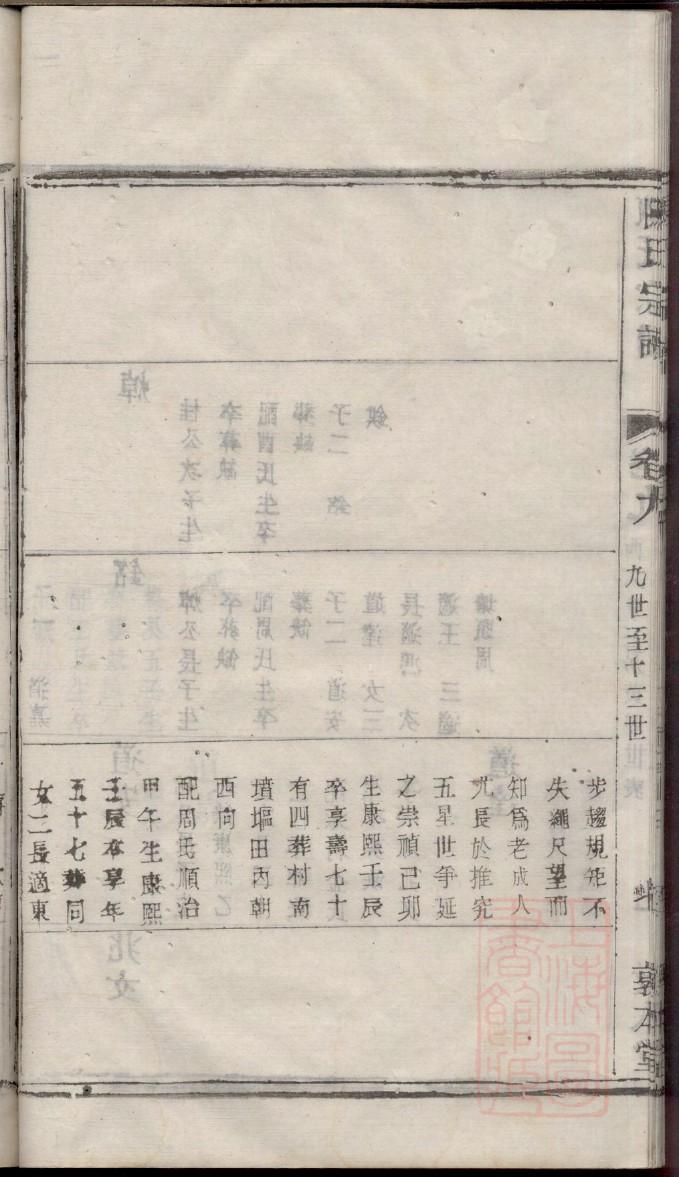 氏宗譜
卷九
九世至十三世
敦本堂
步趨規矩不
失繩尺望而
知爲老成人
尤長於推究
五星世爭延
之崇禎己卯
生康熙壬辰
卒享壽七十
有四葬村南
墳塸田丙朝
西向
配周氏順治
甲午生康熙
壬辰卒享年
五十七葬同
女二長適東